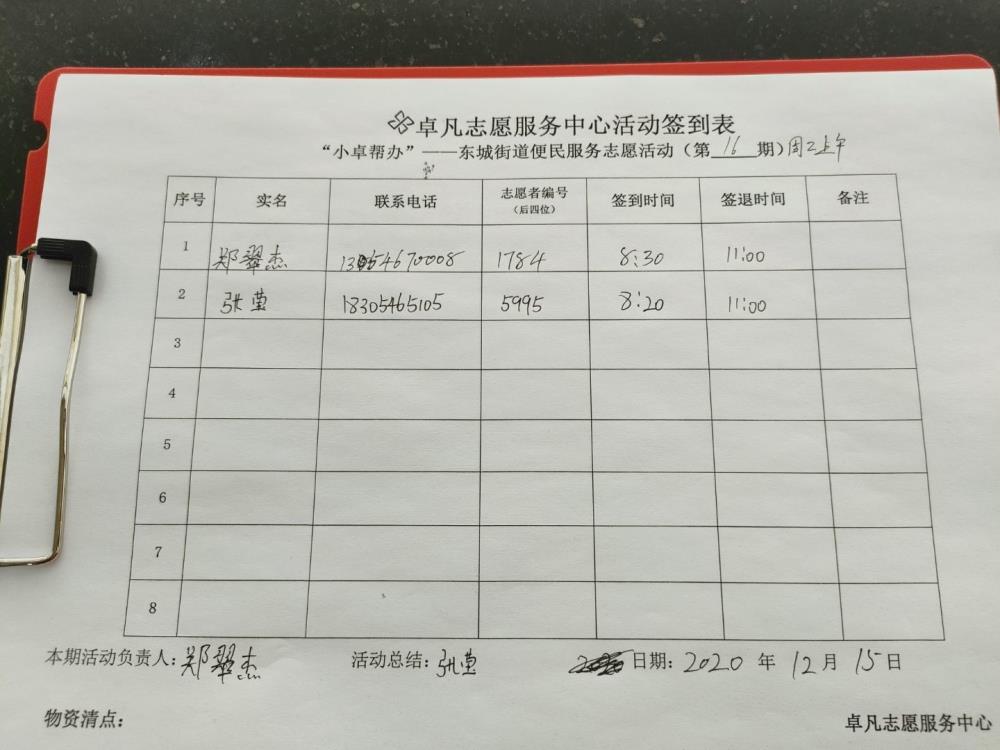 卓凡志愿服务中心活动签到表
“小卓帮办”——东城街道便民服务志愿活动（第16期）周二上午
序号 实名 联系电话 志愿者编号（后四位） 签到时间 签退时间 备注
1 郑翠杰 13954670008 1784 8:30 11:00
2 张莹 18305465105 5995 8:20 11:00
3
4
5
6
7
8
本期活动负责人：郑翠杰 活动总结：张莹 日期：2020年12月15日
物资清点： 卓凡志愿服务中心